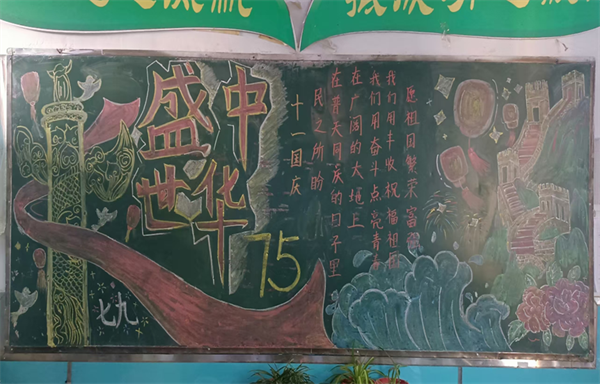 盛世
中华
75
十一国庆
民之所
在普天同庆的日子里
在广阔的大地上
我们用奋斗点亮青
我们用丰收祝福祖国
愿祖国繁荣富强
七九